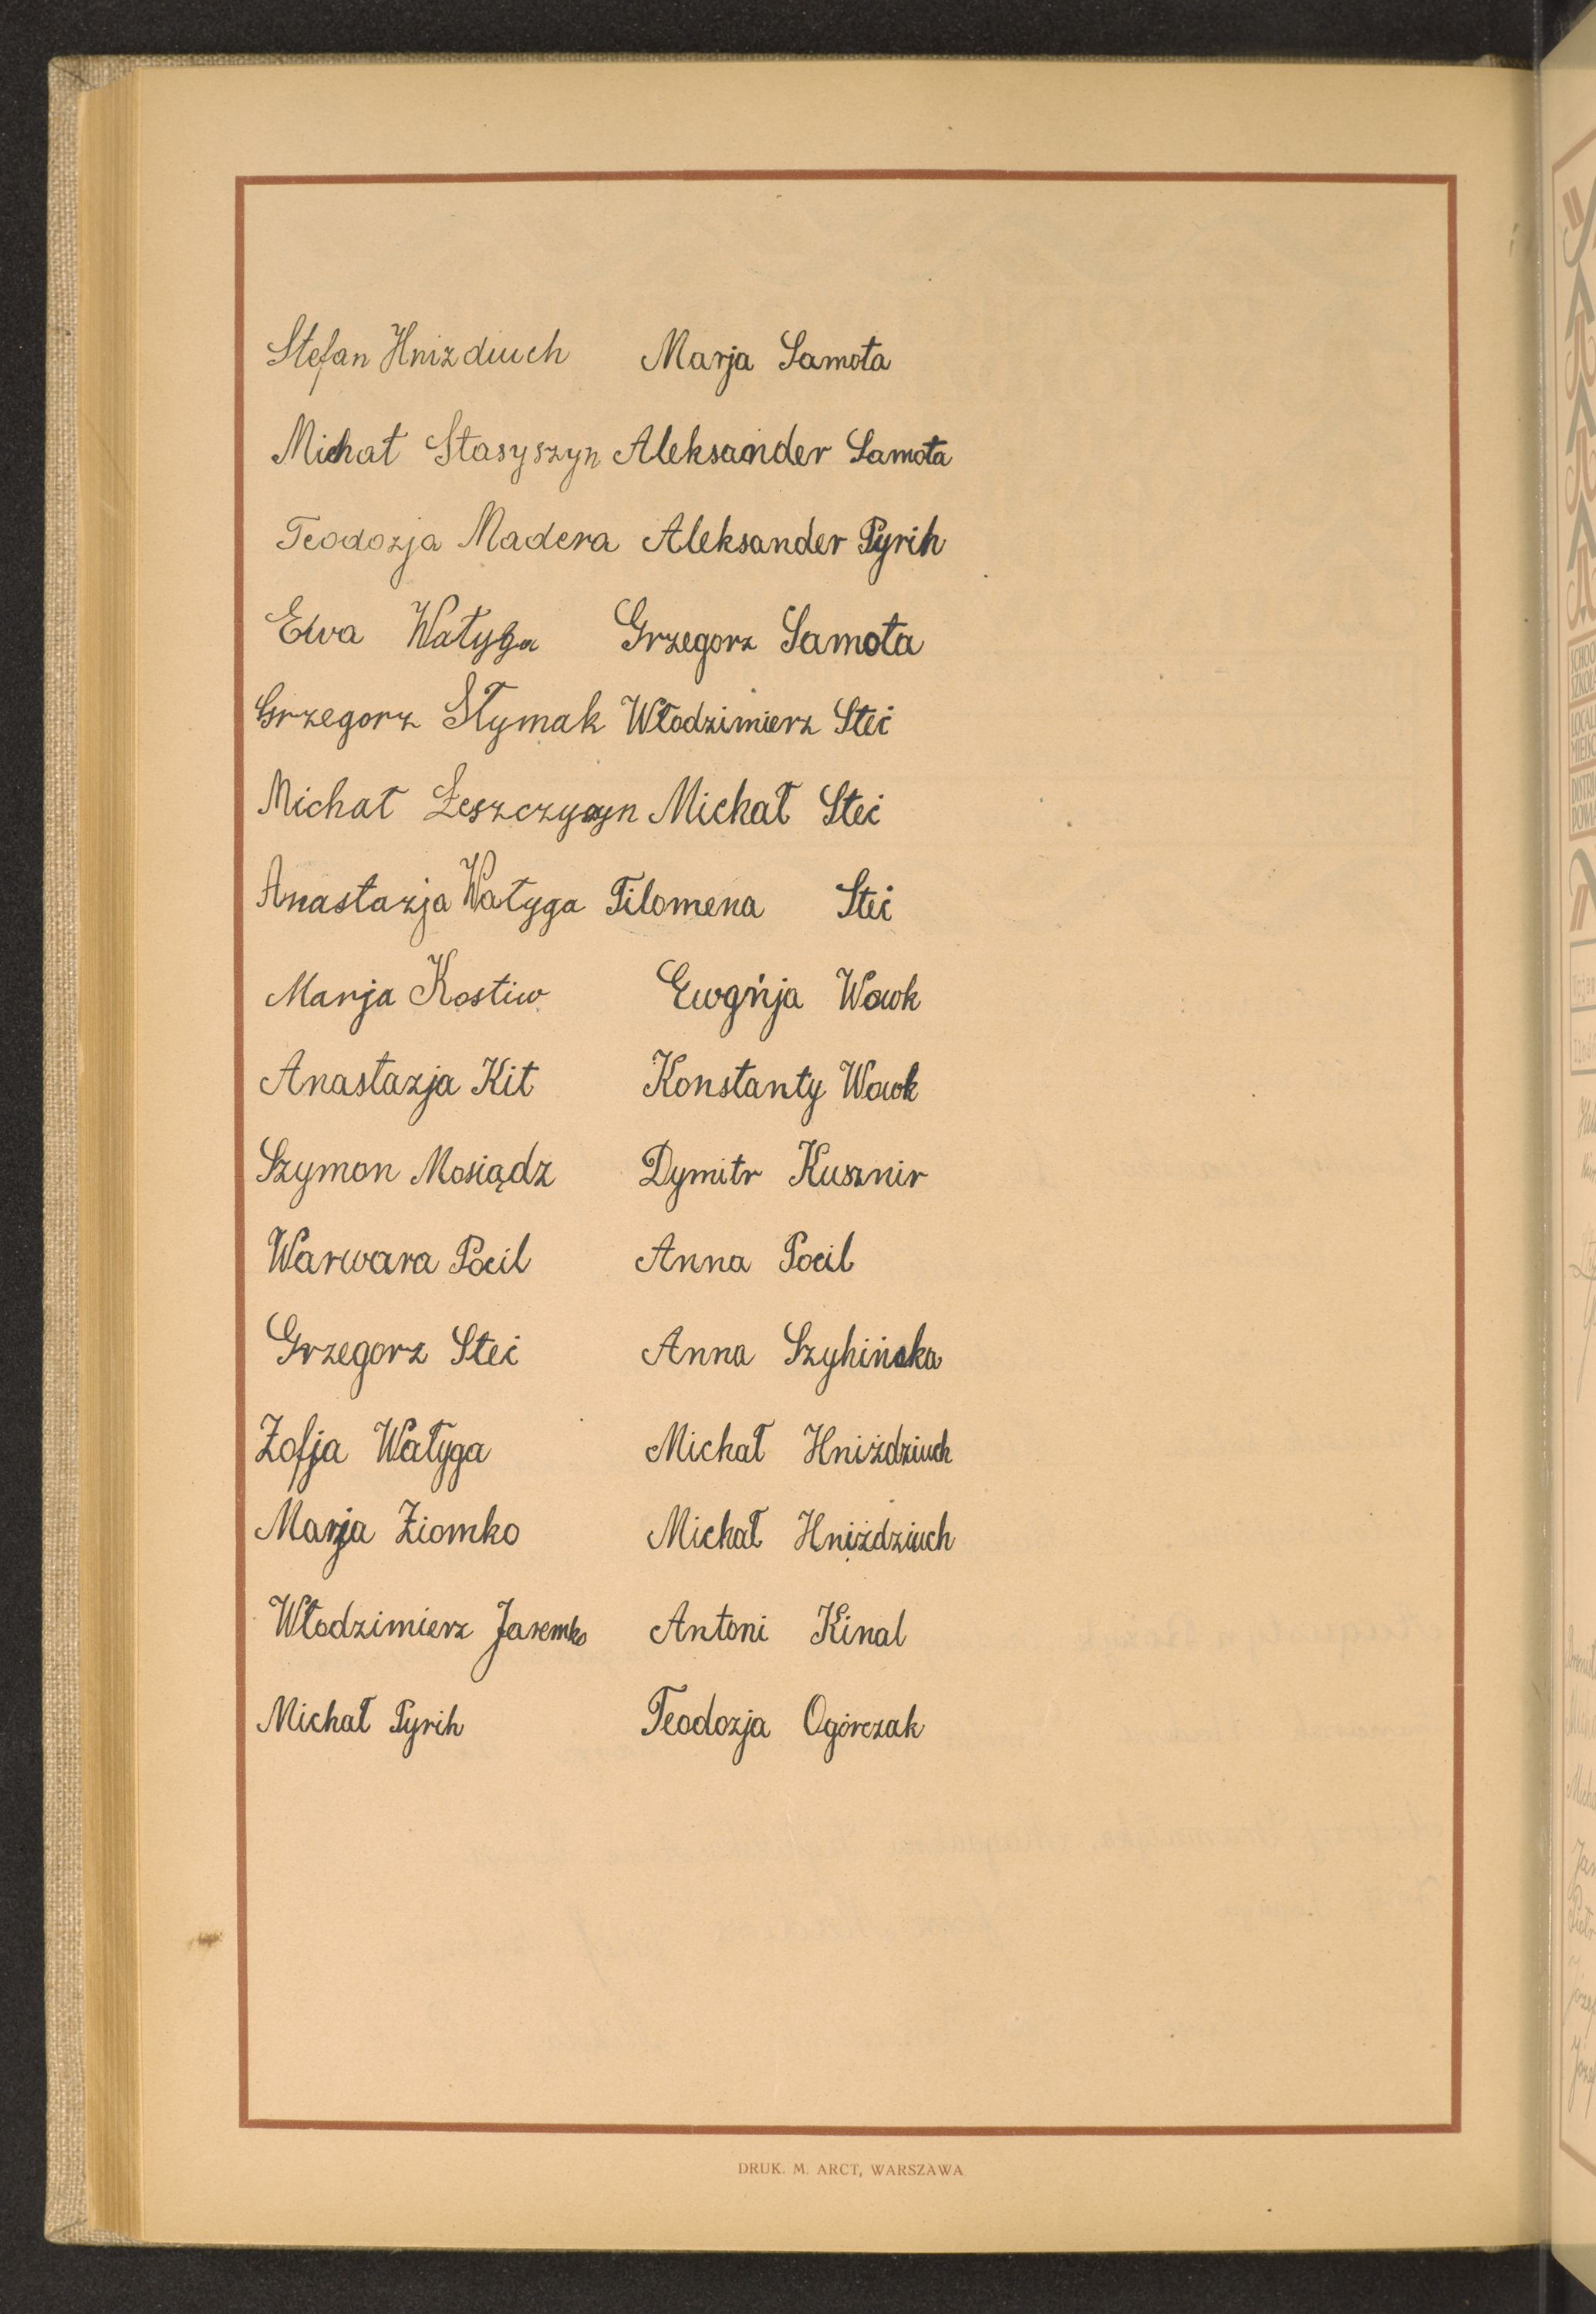 Stefan Hnizdiuch Marja Samota
Michał Stasyszyn Aleksander Samota
Teodozja Madera Aleksander Pyrih
Ewa Watyga Grzegorz Samota
Grzegorz Słymak Włodzimierz Steć
Michał Leszczyszyn Michał Steć
Anastazja Watyga Filomena Steć
Marja Kostiw Ewgńja Wowk
Anastazja Kit Konstanty Wowk
Szymon Mosiądz Dymitr Kusznir
Warwara Pocil Anna Pocil
Grzegorz Steć Anna Szyhińska
Zofja Watyga Michał Hniździuch
Marja Ziomko Michał Hniździuch
Włodzimierz Jaremko Antoni Kinal
Michał Pyrih Teodozja Ogórczak
DRUK. M. ARCT, WARSZAWA